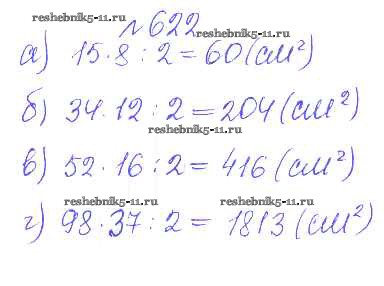 reshebnik5-11.ru
№622
reshebnik5-11.ru
а) 15·8:2=60(см²)
б) 34·12:2=204(см²)
reshebnik5-11.ru
в) 52·16:2=416(см²)
reshebnik5-11.ru reshebnik5-11.ru
г) 98·37:2=1813(см²)